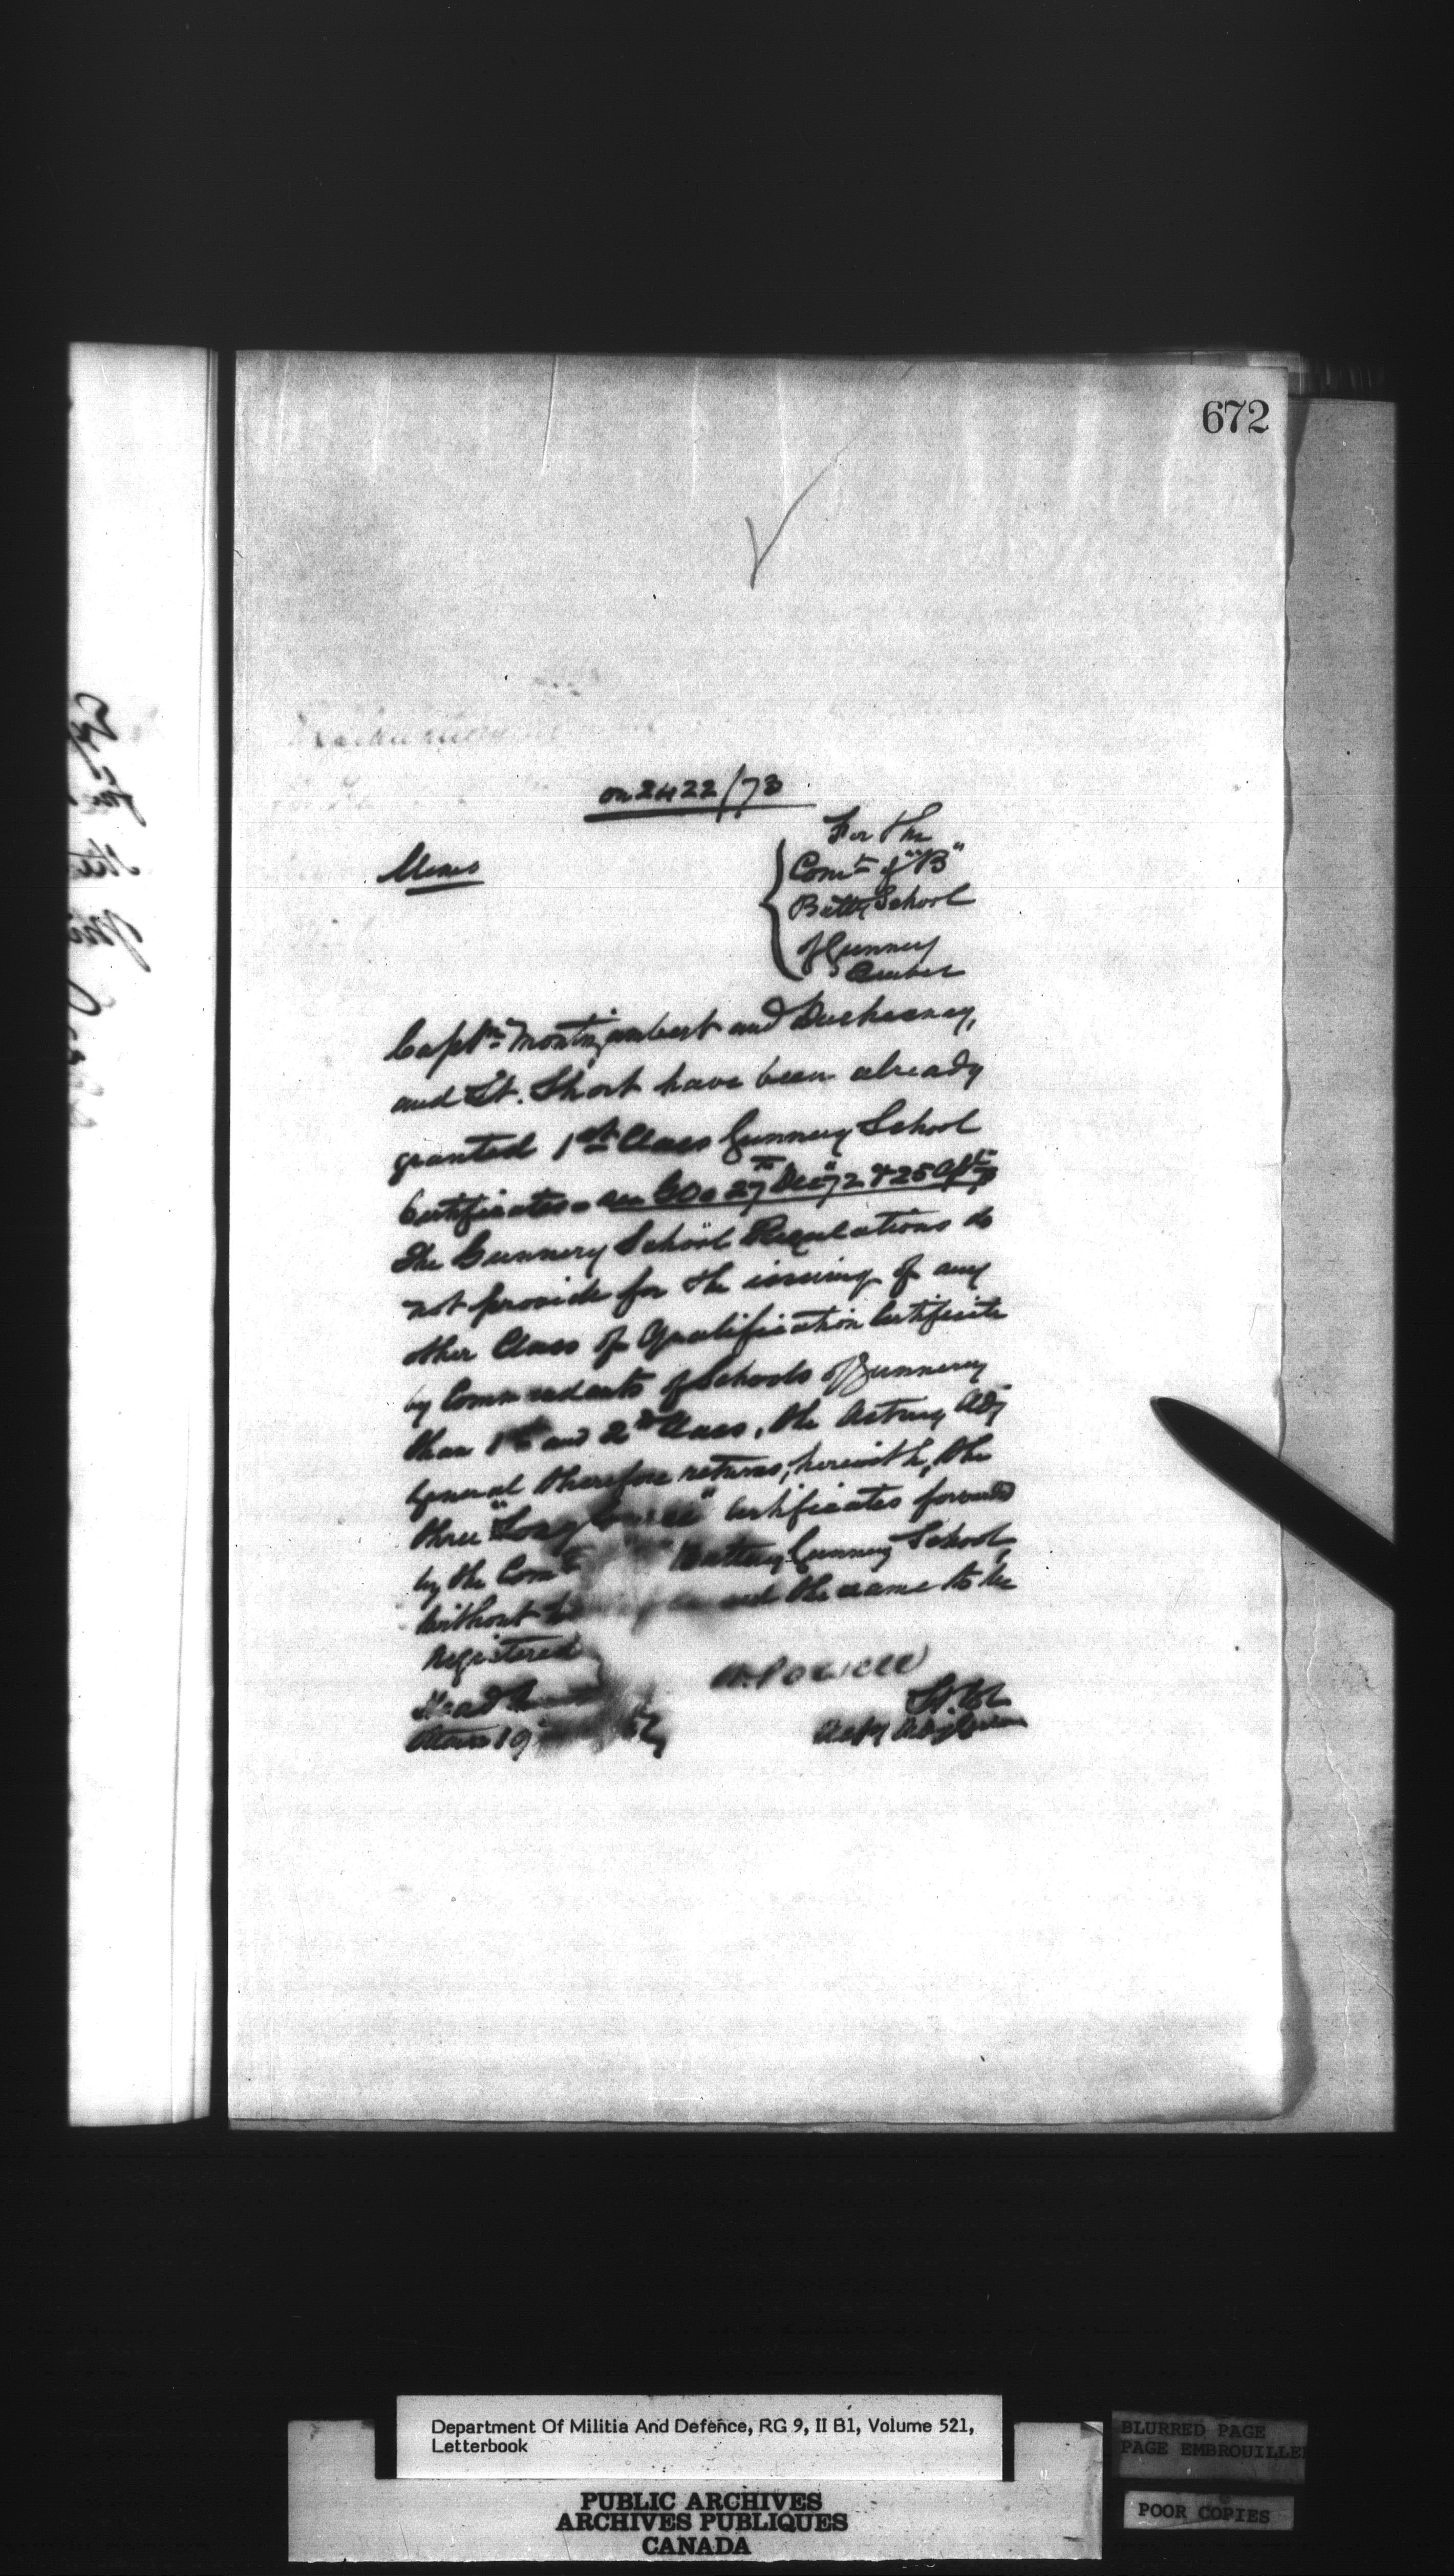 672
on 2422/73
Memo
For the
Comt of "B"
Batty School
of Gunnery
Quebec
Captns Montizambert and Duchesnay,
and Lt. Short have been already
granted 1st Class Gunnery School
Certificates - see GOs 27th Decr 72 & 25 Apl 73
The Gunnery School Regulations do
not provide for the issuing of any
other Class of Qualification Certificate
by Commandants of Schools of Gunnery
than 1st and 2nd Class, the Acting Adj
General therefore returns, herewith, the
three "Long Course" Certificates forwarded
by the Comt Battery Gunnery School,
without the same to be
registered
Head
Ottawa 19
W. Powell
Lt. Col
Actg Adj General
Department Of Militia And Defence, RG 9, II B1, Volume 521,
Letterbook
PUBLIC ARCHIVES
ARCHIVES PUBLIQUES
CANADA
BLURRED PAGE
PAGE EMBROUILLEE
POOR COPIES